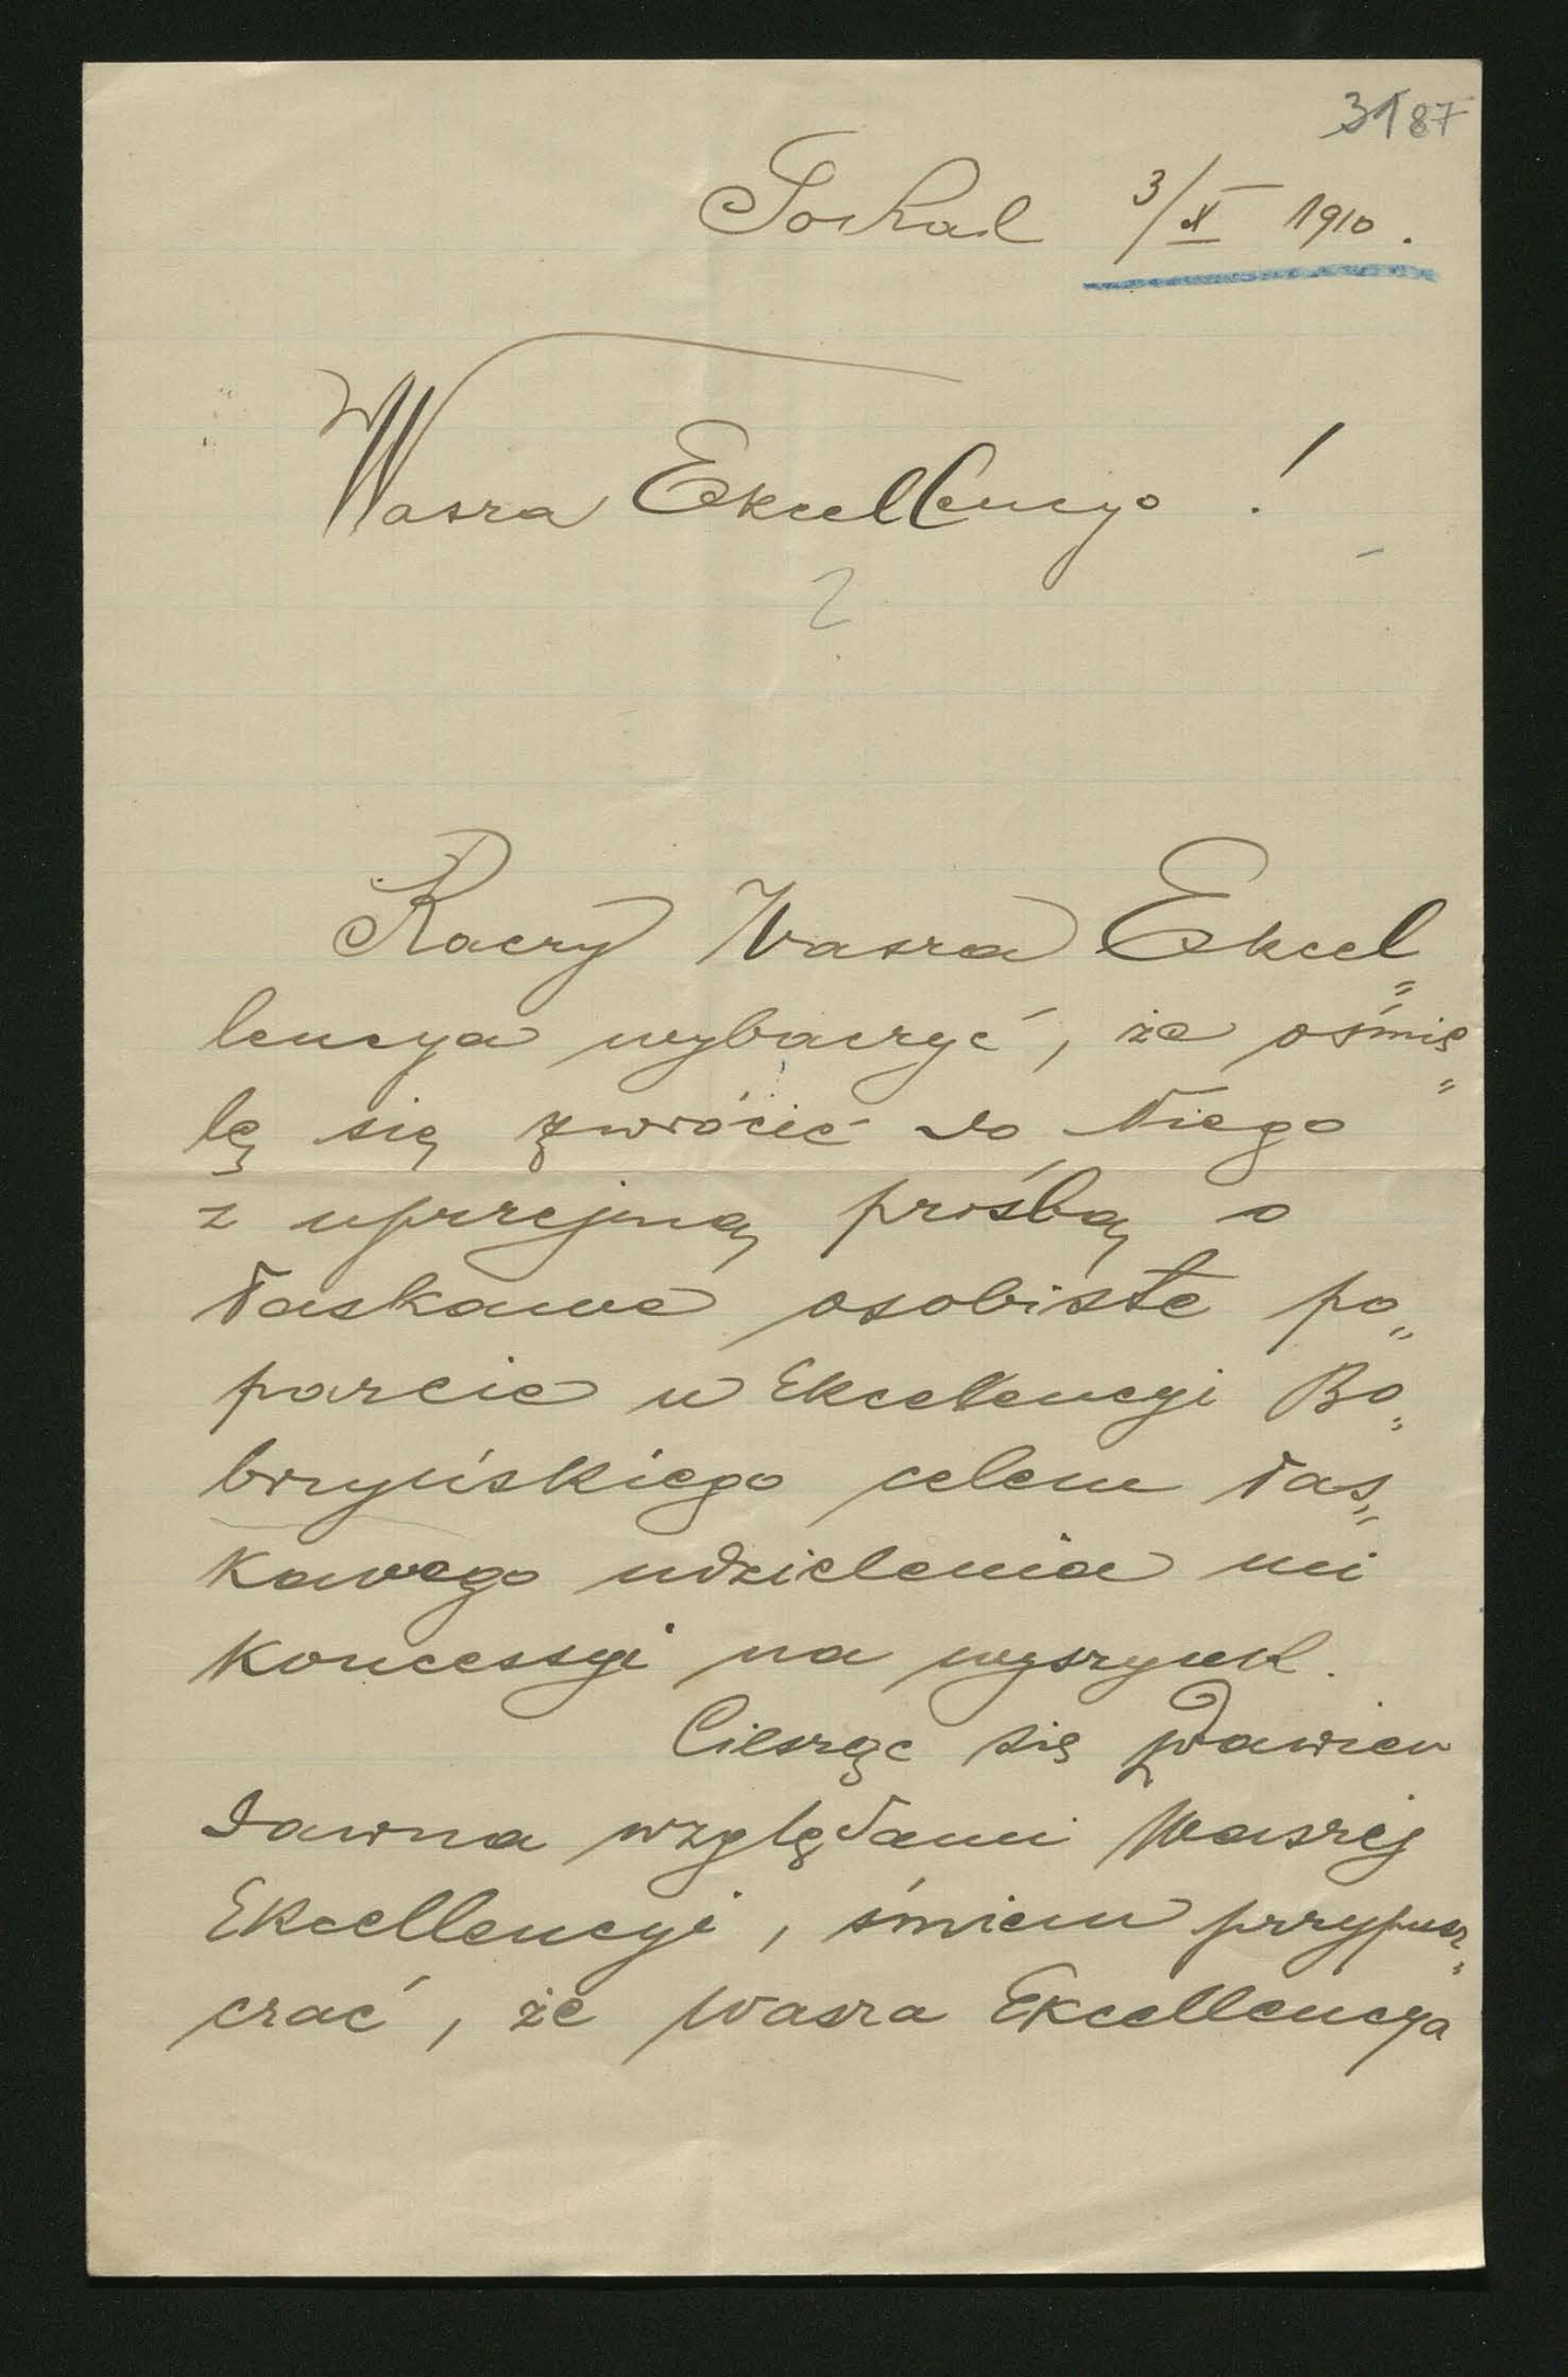 3187
Sokal 3/X 1910.
Wasza Ekscellencyo!
Raczy Wasza Ekscel„
lencya wybaczyć, że ośmie„
lę się zwrócić do Niego
z uprzejmą prośbą o
łaskawe osobiste po„
parcie u Ekscellencyi Bo„
brzyńskiego celem łas„
kawego udzielenia mi
koncessyi na wyszynk.
Ciesząc się zdawien
dawna względami Waszej
Ekscellencyi, śmiem przypusz„
czać, że Wasza Ekscellencya